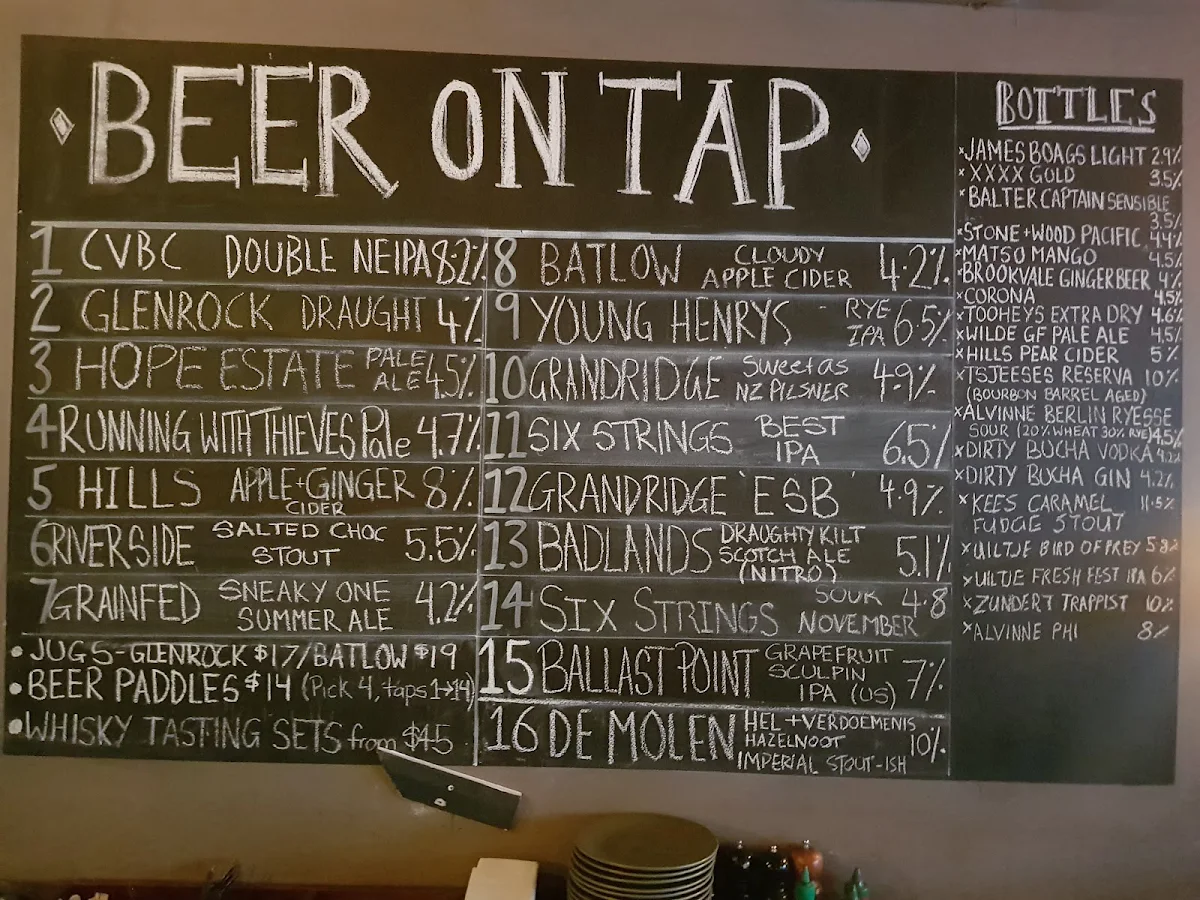 BEER ON TAP
1 CVBC DOUBLE NEIPA 8.2%
2 GLENROCK DRAUGHT 4%
3 HOPE ESTATE PALE ALE 4.5%
4 RUNNING WITH THIEVES Pale 4.7%
5 HILLS APPLE+GINGER CIDER 8%
6 RIVERSIDE SALTED CHOC STOUT 5.5%
7 GRAINFED SNEAKY ONE SUMMER ALE 4.2%
• JUGS-GLENROCK $17/BATLOW $19
• BEER PADDLES $14 (Pick 4, taps 1→14)
• WHISKY TASTING SETS from $45
8 BATLOW CLOUDY APPLE CIDER 4.2%
9 YOUNG HENRYS - RYE IPA 6.5%
10 GRANDRIDGE Sweetas NZ PILSNER 4.9%
11 SIX STRINGS BEST IPA 6.5%
12 GRANDRIDGE 'ESB' 4.9%
13 BADLANDS DRAUGHTY KILT SCOTCH ALE (NITRO) 5.1%
14 SIX STRINGS SOUR NOVEMBER 4.8
15 BALLAST POINT GRAPEFRUIT SCULPIN IPA (US) 7%
16 DE MOLEN HEL + VERDOEMENIS HAZELNOOT IMPERIAL STOUT-ISH 10%
BOTTLES
x JAMES BOAGS LIGHT 2.9%
x XXXX GOLD 3.5%
x BALTER CAPTAIN SENSIBLE
3.5%
x STONE+WOOD PACIFIC 4.4%
x MATSO MANGO 4.5%
x BROOKVALE GINGERBEER 4%
x CORONA 4.5%
x TOOHEYS EXTRA DRY 4.6%
x WILDE GF PALE ALE 4.5%
x HILLS PEAR CIDER 5%
x TSJEESES RESERVA 10%
(BOURBON BARREL AGED)
x ALVINNE BERLIN RYESSE
SOUR (20% WHEAT 30% RYE) 4.5%
x DIRTY BUCHA VODKA 4.2%
x DIRTY BUCHA GIN 4.2%
x KEES CARAMEL 11.5%
FUDGE STOUT
x UILTJE BIRD OF PREY 5.8%
x UILTJE FRESH FEST IPA 6%
x ZUNDERT TRAPPIST 10%
x ALVINNE PHI 8%